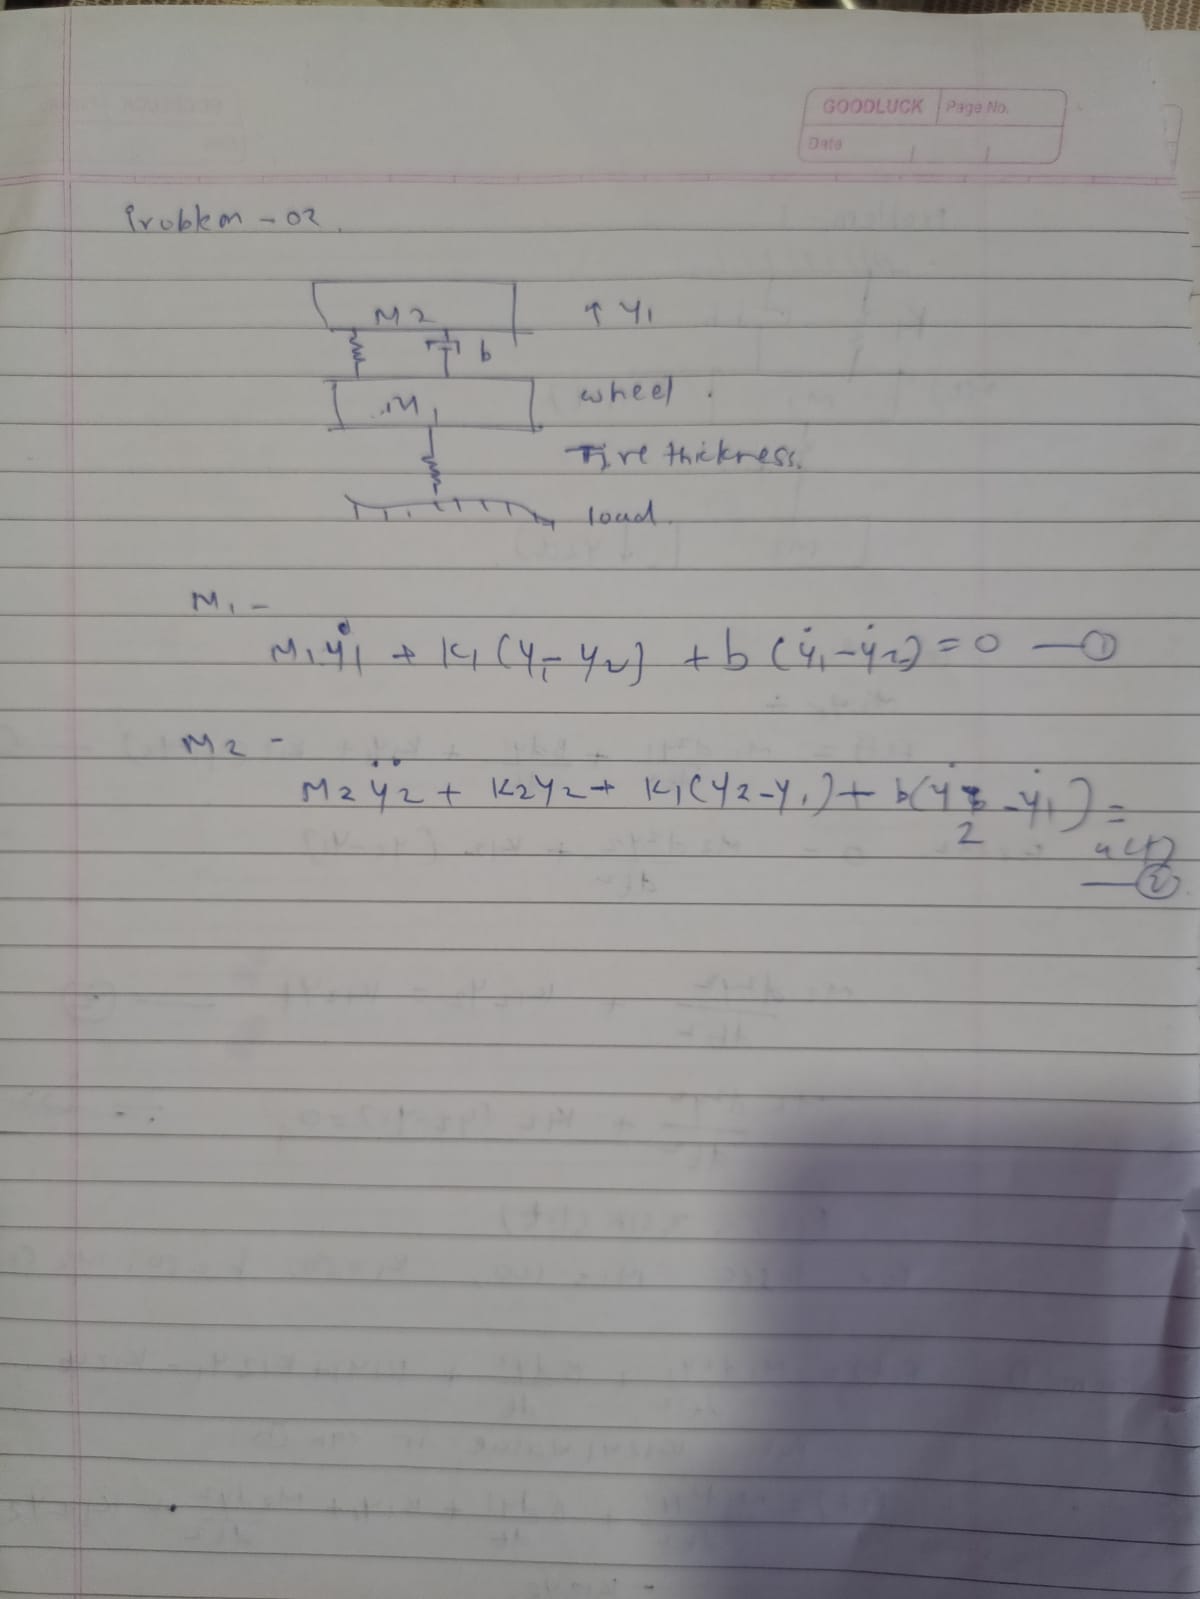 GOODLUCK Page No.
Date
Problem - 02.
M2 ↑ y1
b
M1 wheel.
Tire thickness.
load.
M1 -
M1ẏ1 + K1(y1 - y2) + b(ẏ1 - ẏ2) = 0 — ①
M2 -
M2ÿ2 + K2y2 + K1(y2 - y1) + b(ẏ2 - ẏ1) =
u(t)
— ②